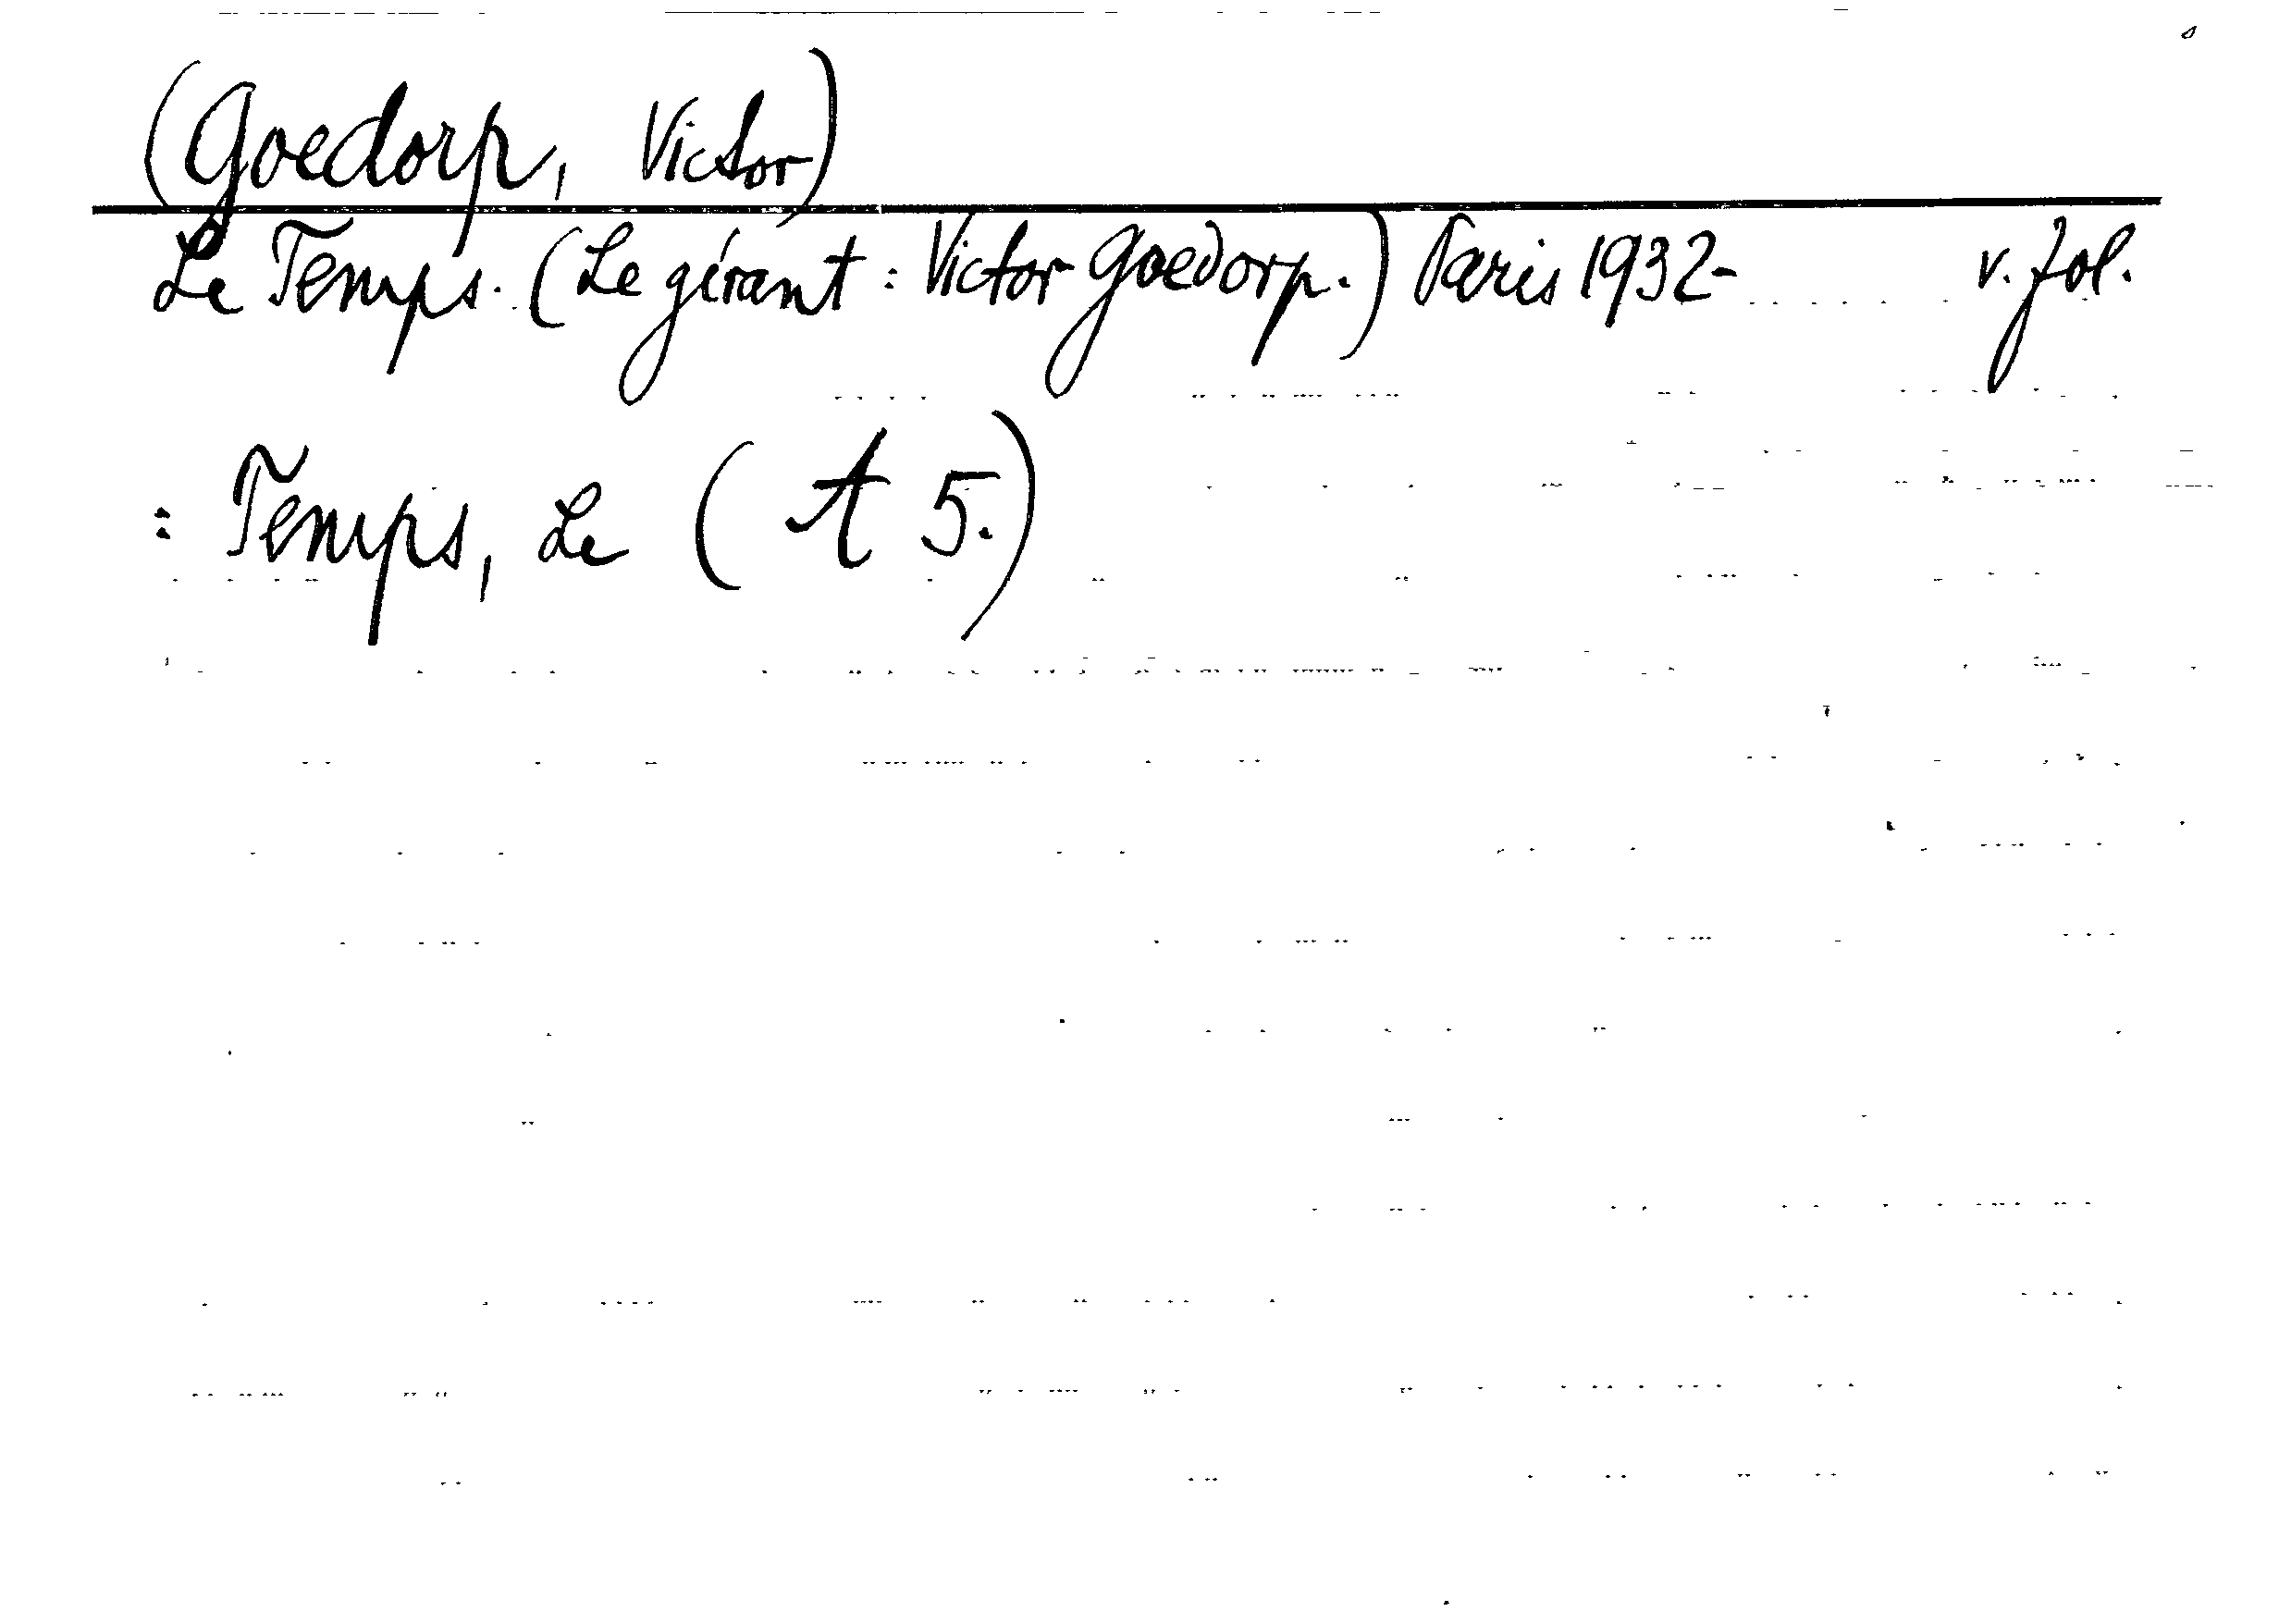 (Goedorp, Victor)
Le Temps. (Le gérant: Victor Goedorp.) Paris 1932- v. fol.
: Temps, Le (A 5.)